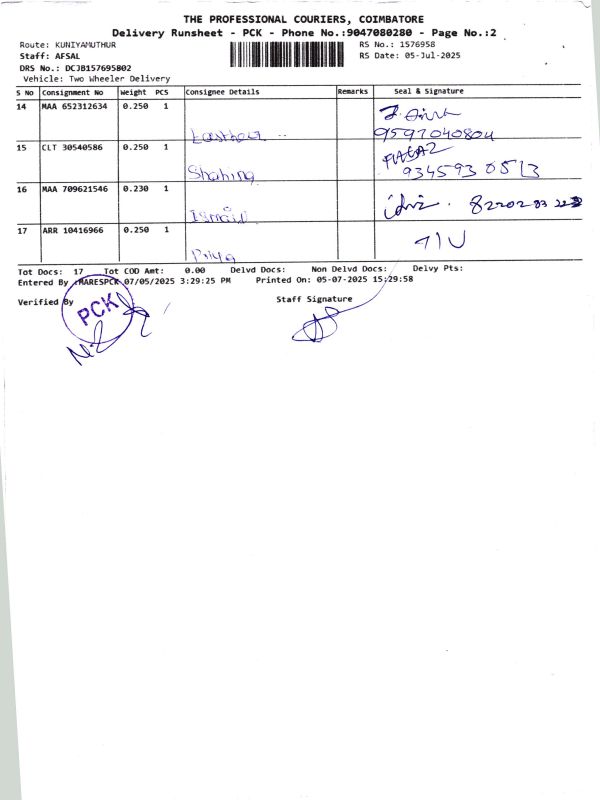 THE PROFESSIONAL COURIERS, COIMBATORE
Delivery Runsheet - PCK - Phone No.:9047080280 - Page No.:2
Route: KUNIYAMUTHUR RS No.: 1576958
Staff: AFSAL RS Date: 05-Jul-2025
DRS No.: DCJB157695802
Vehicle: Two Wheeler Delivery
S No Consignment No Weight PCS Consignee Details Remarks Seal & Signature
14 MAA 652312634 0.250 1
9597040804
15 CLT 30540586 0.250 1
Shahina 9345930513
16 MAA 709621546 0.230 1
Ismail
17 ARR 10416966 0.250 1
Priya
Tot Docs: 17 Tot COD Amt: 0.00 Delvd Docs: Non Delvd Docs: Delvy Pts:
Entered By :MARESPCK 07/05/2025 3:29:25 PM Printed On: 05-07-2025 15:29:58
Verified By Staff Signature
PCK